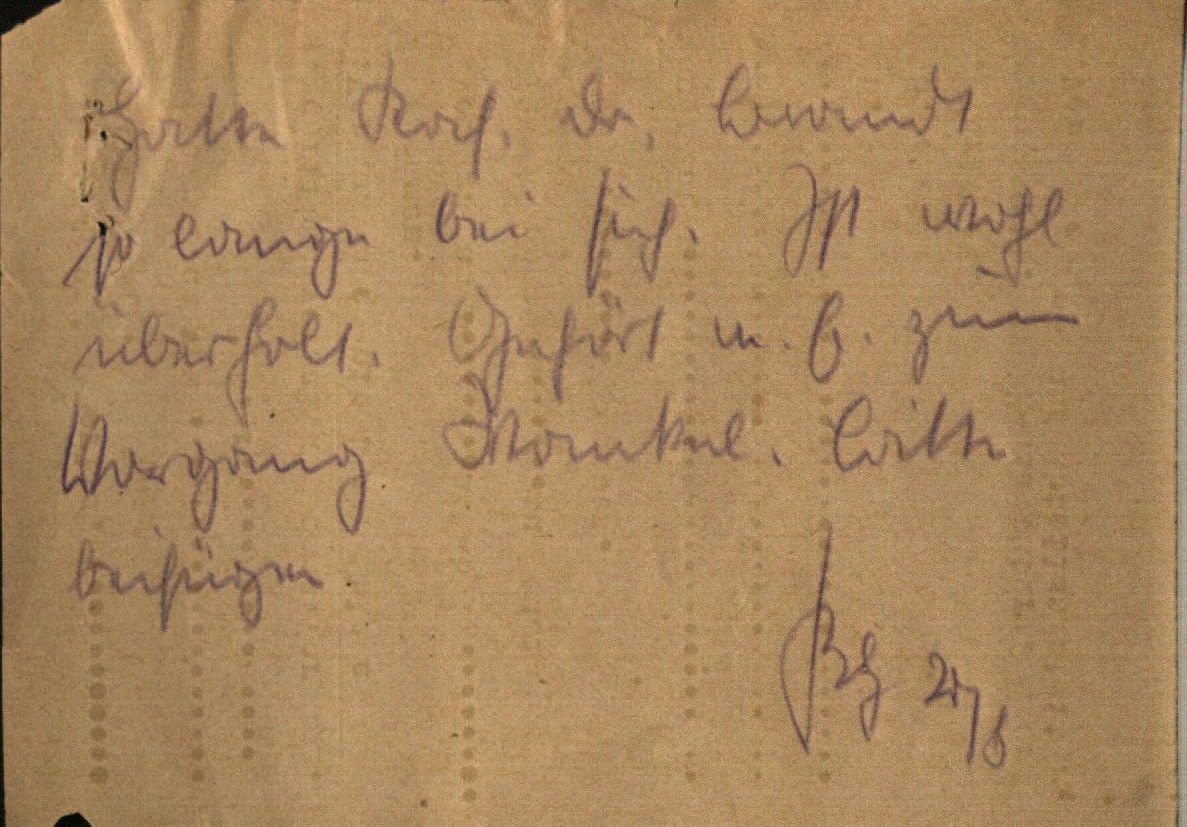 Hatte Ref. Dr. Brandt
so lange bei sich. Ist wohl
überholt. Gehört m. E. zum
Vorgang Mankel. Bitte
beifügen.